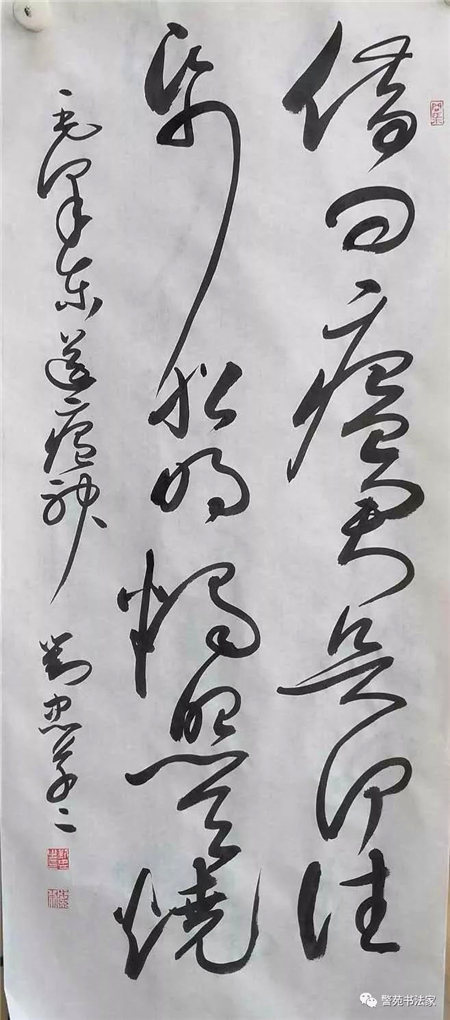 借问瘟君欲何往
纸船明烛照天燒
毛泽东送瘟神 劉忠
警苑书法家